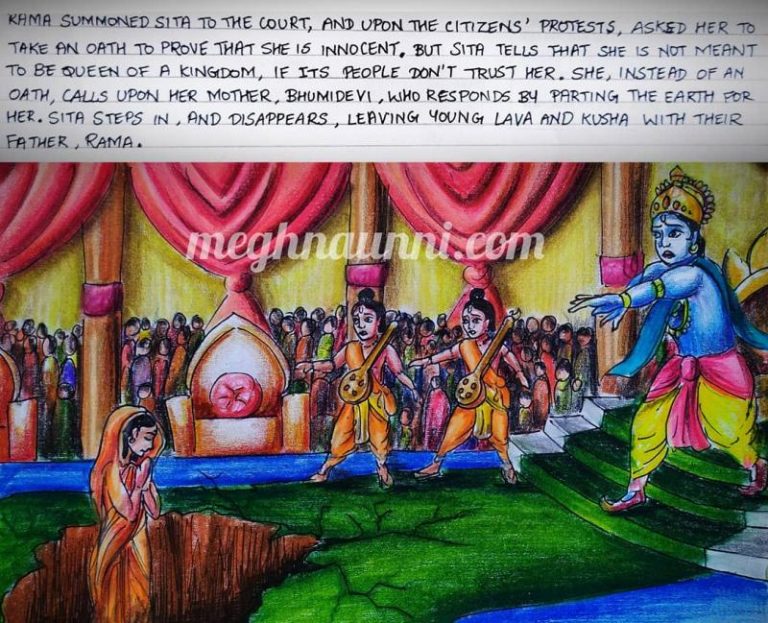 RAMA SUMMONED SITA TO THE COURT, AND UPON THE CITIZENS' PROTESTS, ASKED HER TO
TAKE AN OATH TO PROVE THAT SHE IS INNOCENT. BUT SITA TELLS THAT SHE IS NOT MEANT
TO BE QUEEN OF A KINGDOM, IF ITS PEOPLE DON'T TRUST HER. SHE, INSTEAD OF AN
OATH, CALLS UPON HER MOTHER, BHUMIDEVI, WHO RESPONDS BY PARTING THE EARTH FOR
HER. SITA STEPS IN, AND DISAPPEARS, LEAVING YOUNG LAVA AND KUSHA WITH THEIR
FATHER, RAMA.
meghnaunni.com